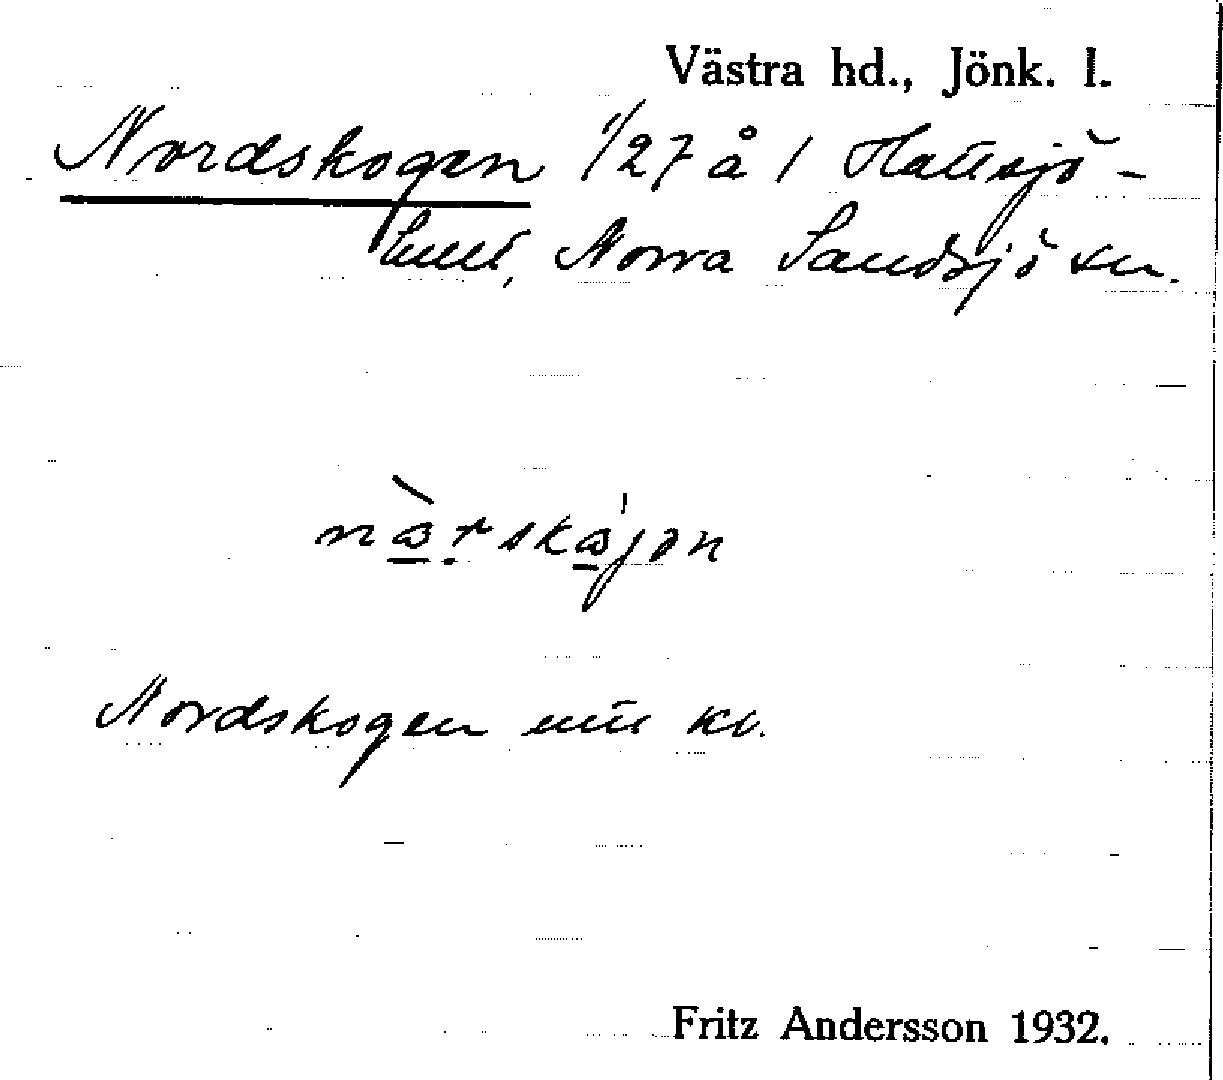 Västra hd., Jönk. l.
Nordskogen 1/27 å 1 Hattsjö-
hult, Norra Sandsjö sn.
Nordskogen
Fritz Andersson 1932.